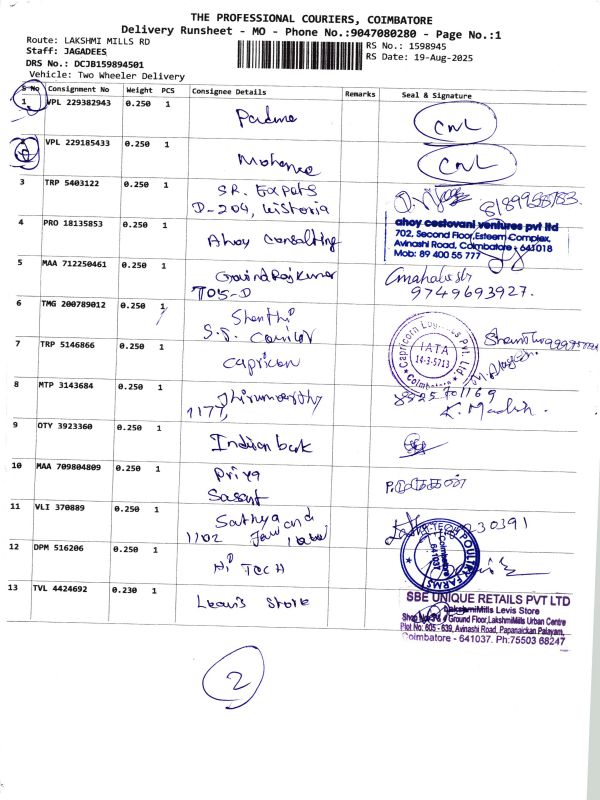 THE PROFESSIONAL COURIERS, COIMBATORE
Delivery Runsheet - MO - Phone No.:9047080280 - Page No.:1
Route: LAKSHMI MILLS RD
Staff: JAGADEES
DRS No.: DCJB159894501
Vehicle: Two Wheeler Delivery
RS No.: 1598945
RS Date: 19-Aug-2025
S No Consignment No Weight PCS Consignee Details Remarks Seal & Signature
1 VPL 229382943 0.250 1 Padma CNL
2 VPL 229185433 0.250 1 Mohana CNL
3 TRP 5403122 0.250 1 S.R. Expots
D-204, Wistoria 8189958783.
4 PRO 18135853 0.250 1 Ahoy Consalting
ahoy cestovani ventures pvt ltd
702, Second Floor, Esteem Complex,
Avinashi Road, Coimbatore - 641018
Mob: 89 400 55 777
5 MAA 712250461 0.250 1 GovindRajKumar
T05-D
9749693927.
6 TMG 200789012 0.250 1 Shanthi
7 TRP 5146866 0.250 1 Capricon
Capricorn Logistics Pvt. Ltd.
IATA
14-3-5713
Coimbatore
8 MTP 3143684 0.250 1 Thirumoorthy
1177, 8925701169
9 OTY 3923360 0.250 1 Indian bank
10 MAA 709804809 0.250 1 Priya
11 VLI 370889 0.250 1 Sathya and
1102 230391
12 DPM 516206 0.250 1 Hi TECH
HI-TECH POULTRY FARMS
Coimbatore
641037
13 TVL 4424692 0.230 1 Leavis Store
SBE UNIQUE RETAILS PVT LTD
LakshmiMills Levis Store
Ground Floor, LakshmiMills Urban Centre
Plot No: 605 - 639, Avinashi Road, Papanaickan Palayam,
Coimbatore - 641037. Ph:75503 68247
2